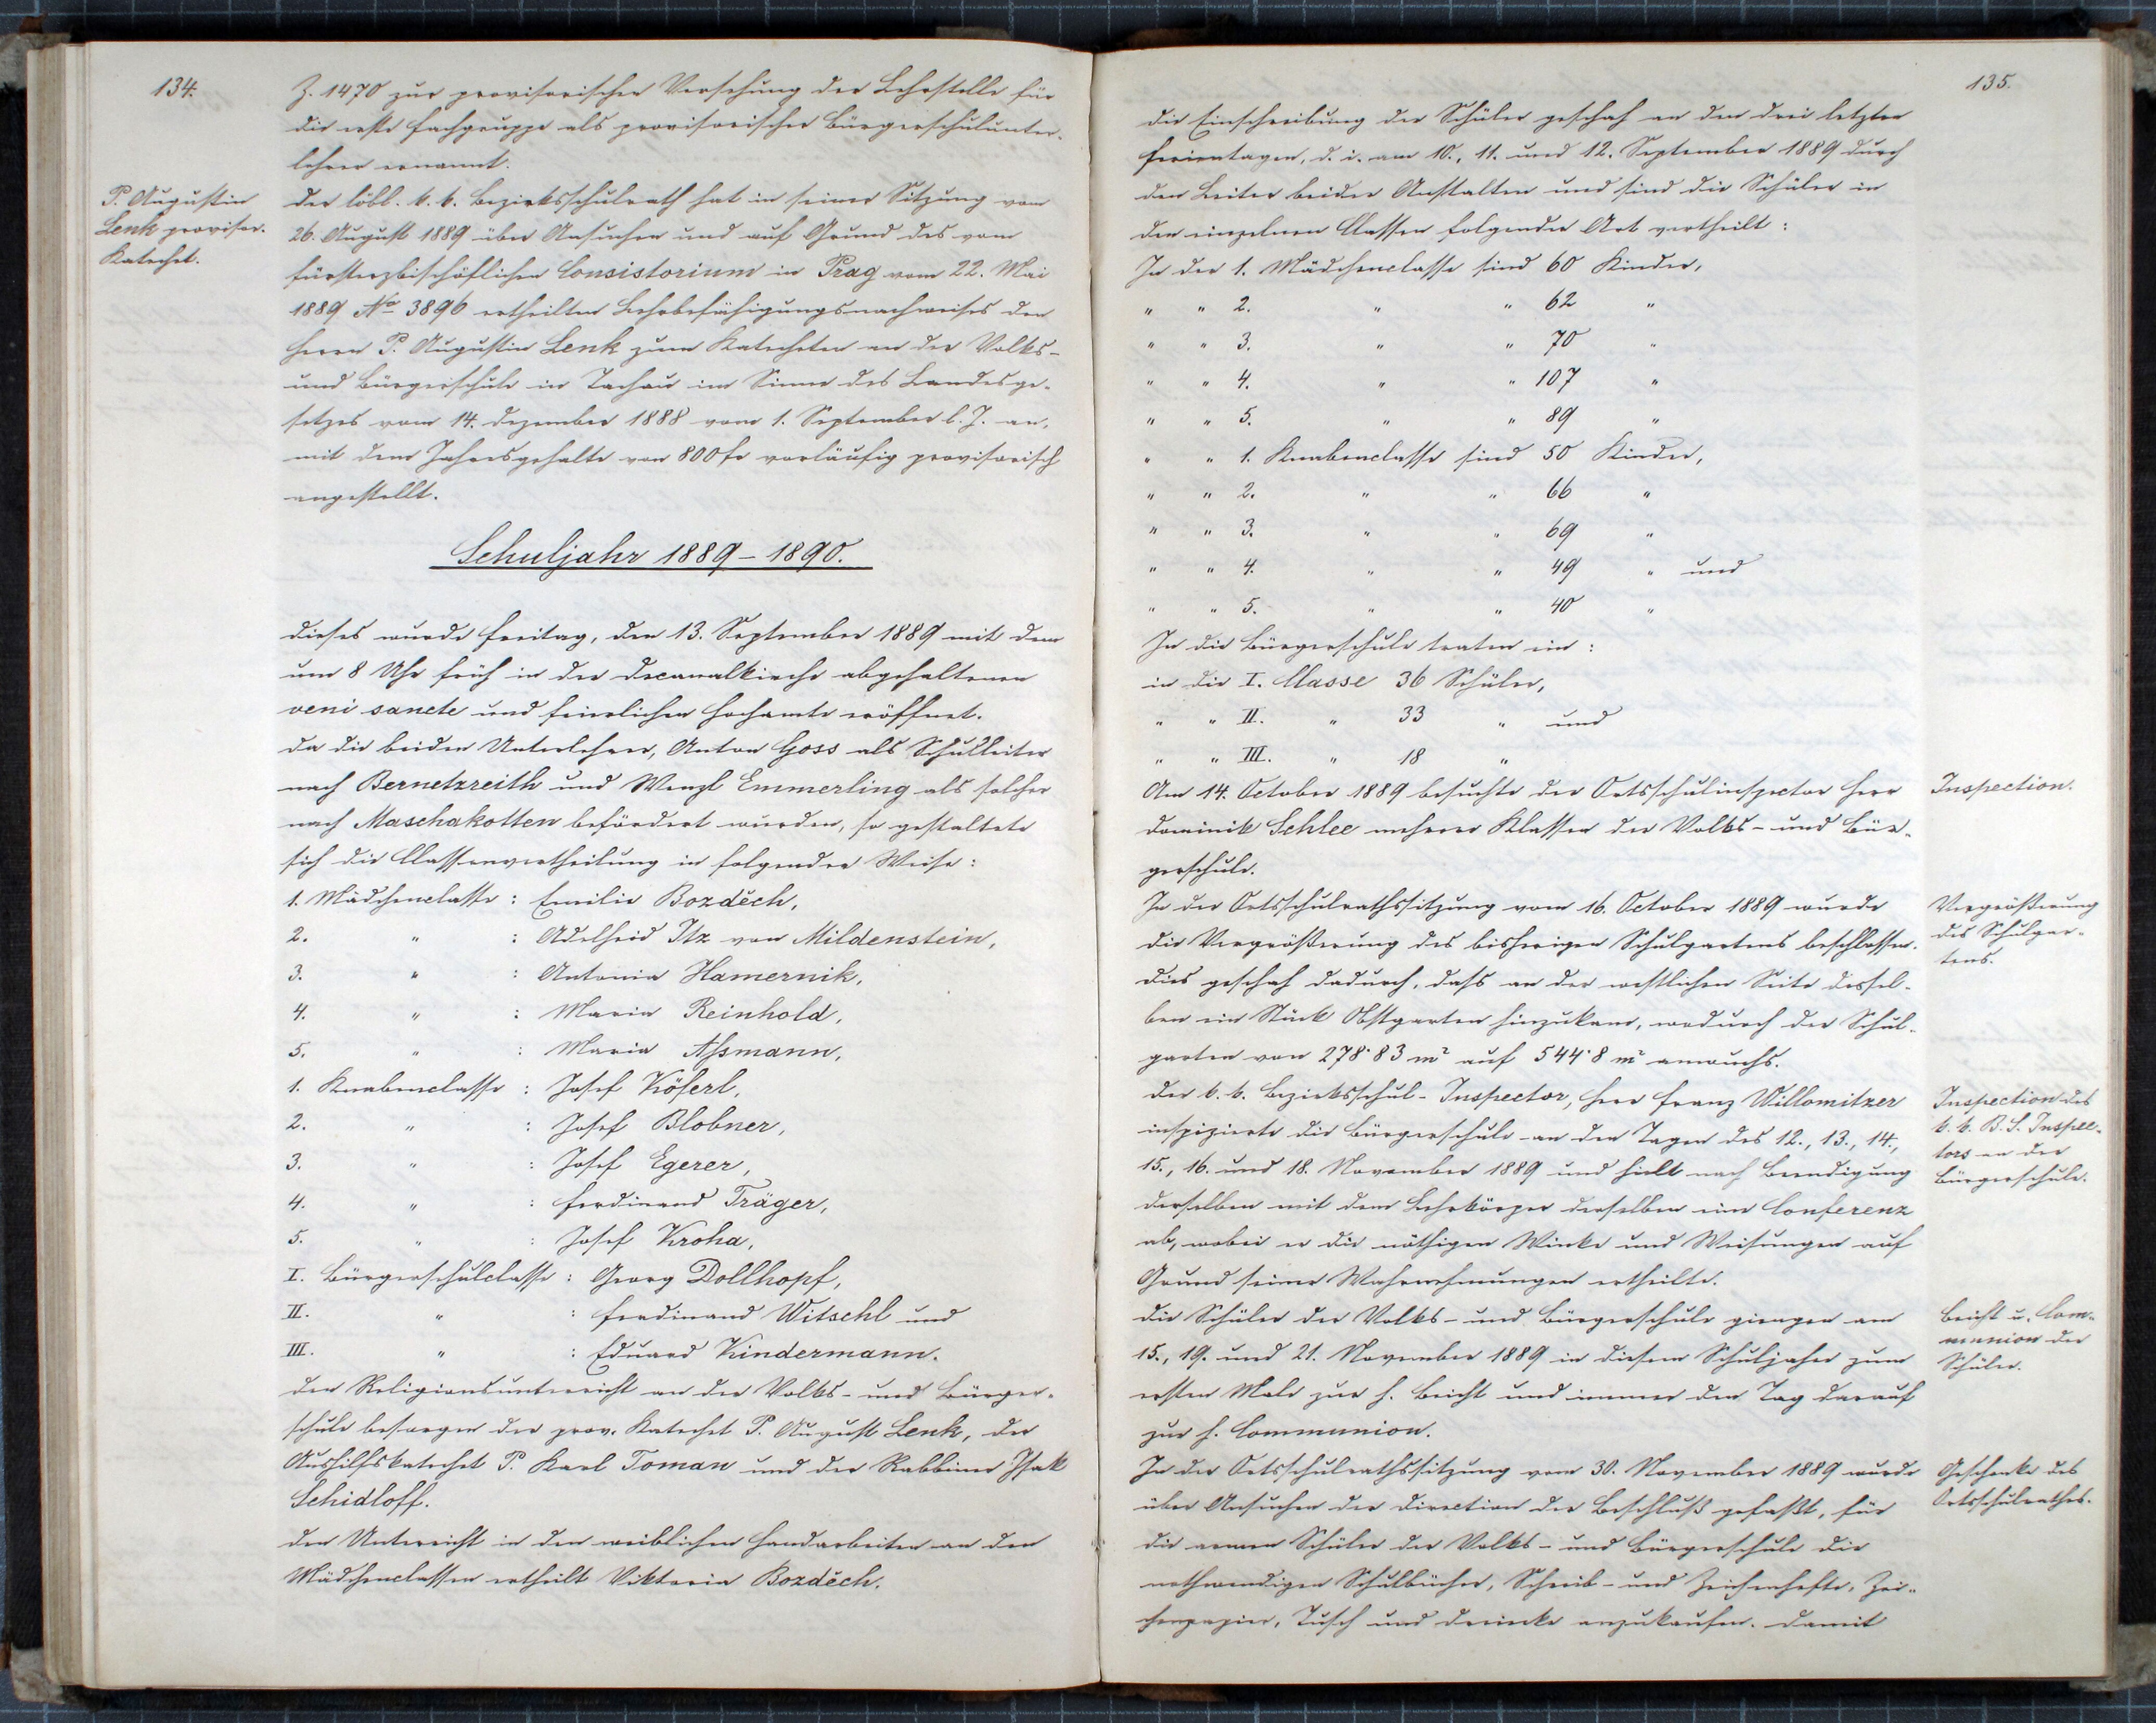 134.
Z. 1470 zur provisorischen Versehung der Lehrstelle für
die erste Fachgruppe als provisorischer Bürgerschulunter-
lehrer ernannt.
P. Augustin
Lenk provisor.
Katechet.
Der löbl. k. k. Bezirksschulrath hat in seiner Sitzung vom
26. August 1889 über Ansuchen und auf Grund des vom
fürsterzbischöflichen Consistorium in Prag vom 22. Mai
1889 No 3896 ertheilten Lehrbefähigungsnachweises den
Herrn P. Augustin Lenk zum Katecheten an der Volks-
und Bürgerschule in Tachau im Sinne des Landesge-
setzes vom 14. Dezember 1888 vom 1. September l. J. an,
mit dem Jahresgehalte von 800 fr vorläufig provisorisch
angestellt.
Schuljahr 1889-1890.
Dieses wurde Freitag, den 13. September 1889 mit dem
um 8 Uhr früh in der Decanalkirche abgehaltenen
veni sancte und feierlichen Hochamte eröffnet.
Da die beiden Unterlehrer, Anton Goss als Schulleiter
nach Bernetzreith und Wenzl Emmerling als solcher
nach Maschakotten befördert wurden, so gestaltete
sich die Classenvertheilung in folgender Weise:
1. Mädchenclasse : Emilie Bozděch,
2. " : Adelheid Itz von Mildenstein,
3. " : Antonia Hamernik,
4. " : Maria Reinhold,
5. " : Maria Assmann,
1. Knabenclasse : Josef Köferl,
2. " : Josef Blobner,
3. " : Josef Egerer,
4. " : Ferdinand Träger,
5. " : Josef Kroha,
I. Bürgerschulclasse : Georg Dollhopf,
II. " : Ferdinand Witschl und
III. " : Eduard Kindermann.
Den Religionsunterricht an der Volks- und Bürger-
schule besorgen der prov. Katechet P. August Lenk, der
Aushilfskatechet P. Karl Toman und der Rabbiner Isak
Schidloff.
Den Unterricht in den weiblichen Handarbeiten an den
Mädchenclassen ertheilt Viktoria Bozděch.
135.
Die Einschreibung der Schüler geschah an den drei letzten
Ferientagen, d. i. am 10., 11. und 12. September 1889 durch
den Leiter beider Anstalten und sind die Schüler in
den einzelnen Classen folgender Art vertheilt:
In der 1. Mädchenclasse sind 60 Kinder,
" " 2. " " 62 "
" " 3. " " 70 "
" " 4. " " 107 "
" " 5. " " 89 "
" " 1. Knabenclasse sind 50 Kinder,
" " 2. " " 66 "
" " 3. " " 69 "
" " 4. " " 49 " und
" " 5. " " 40 "
In die Bürgerschule traten ein:
in die I. Classe 36 Schüler,
" " II. " 33 " und
" " III. " 18 "
Am 14. October 1889 besuchte der Ortsschulinspector Herr
Dominik Schlee mehrere Klassen der Volks- und Bür-
gerschule.
Inspection.
In der Ortsschulrathssitzung vom 16. October 1889 wurde
die Vergrößerung des bisherigen Schulgartens beschlossen.
Dies geschah dadurch, dass an der westlichen Seite dessel-
ben ein Stück Obstgarten hinzukam, wodurch der Schul-
garten von 278·83 m² auf 544·8 m² anwuchs.
Vergrößerung
des Schulgar-
tens.
Der k. k. Bezirksschul-Inspector, Herr Franz Willomitzer
inspizierte die Bürgerschule an den Tagen des 12., 13., 14.,
15., 16. und 18. November 1889 und hielt nach Beendigung
derselben mit dem Lehrkörper derselben eine Conferenz
ab, wobei er die nöthigen Winke und Weisungen auf
Grund seiner Wahrnehmungen ertheilte.
Inspection des
k. k. B. S. Inspec-
tors an der
Bürgerschule.
Die Schüler der Volks- und Bürgerschule giengen am
15., 19. und 21. November 1889 in diesem Schuljahre zum
ersten Male zur h. Beicht und immer den Tag darauf
zur h. Communion.
Beicht u. Com-
munion der
Schüler.
In der Ortsschulrathssitzung vom 30. November 1889 wurde
über Ansuchen der Direction der Beschluß gefaßt, für
die armen Schüler der Volks- und Bürgerschule die
nothwendigen Schulbücher, Schreib- und Zeichenhefte, Zei-
chenpapier, Tusch und Dreiecke anzukaufen. Damit
Geschenke des
Ortsschulrathes.